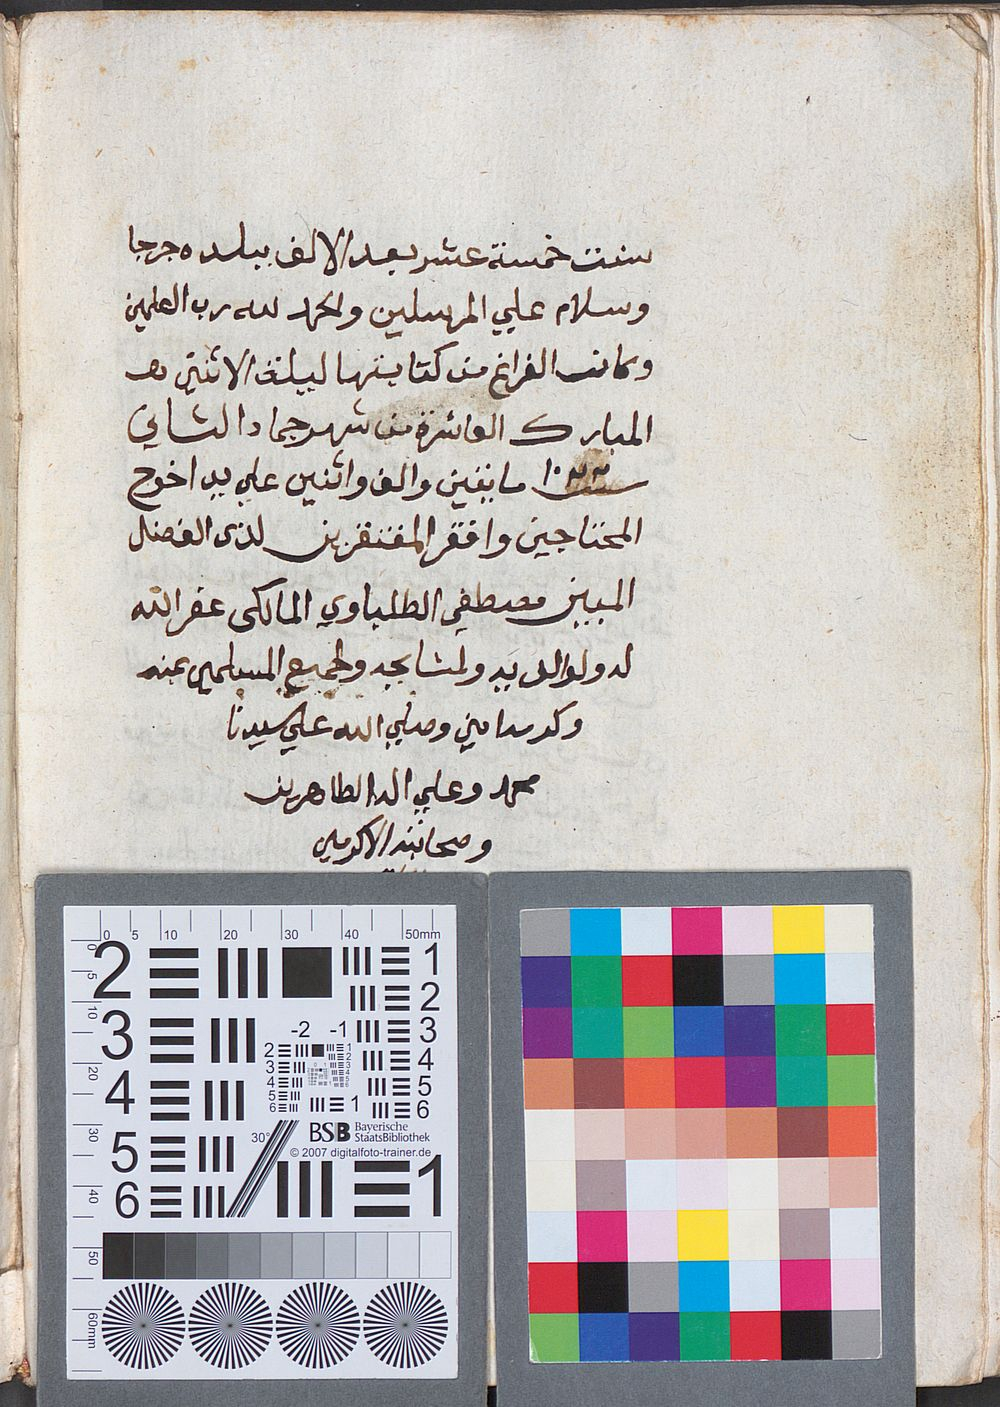 سنت خمسة عشر بعد الالف ببلده جرجا
وسلام علي المرسلين والحمد لله رب العلمين
وكانت الفراغ من كتابتها ليلة الاثنين
المبارك العاشرة من شهر جماد الثاني
سنت مايتين والف واثنين علي يد احوج
المحتاجين وافقر المفتقرين لذي الفضل
المبين مصطفي الطلباوي المالكي غفر الله
له ولوالديه ولمشايخه ولجميع المسلمين بمنه
وكرمه امين وصلي الله علي سيدنا
محمد وعلي اله الطاهرين
وصحابته الاكرمين
0 5 10 20 30 40 50mm
2 1
2
3 -2 -1 3
4 4
5 5
6 6
1
30°
BSB Bayerische
StaatsBibliothek
© 2007 digitalfoto-trainer.de
1
0 5 10 20 30 40 50 60mm